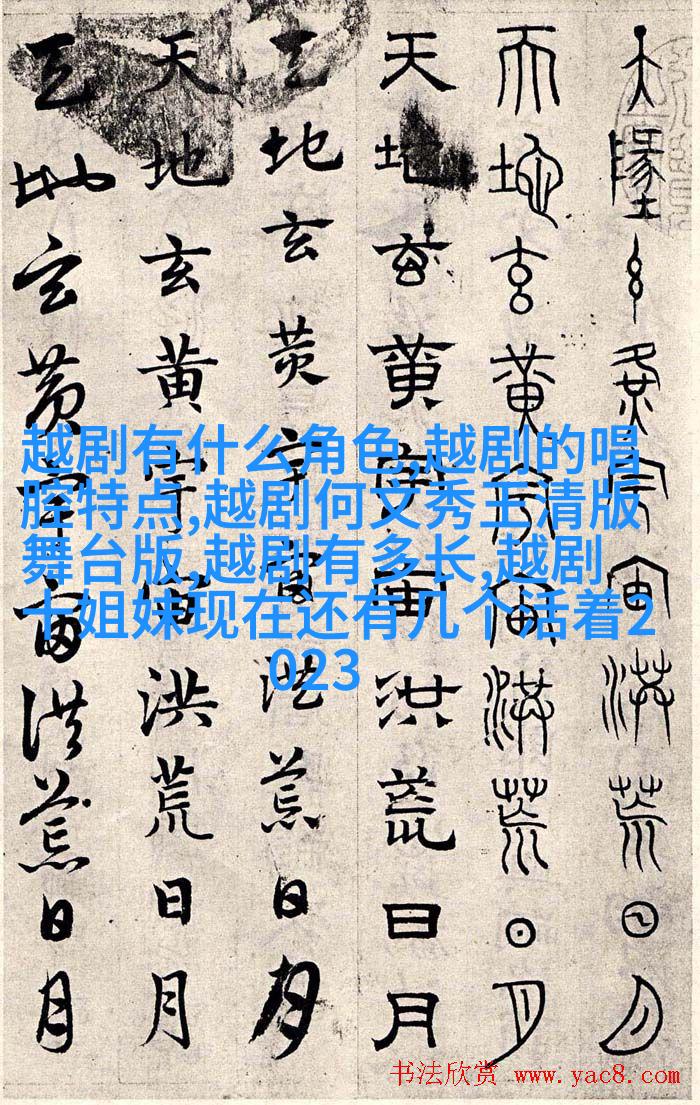 天地玄黄宇宙洪荒日月
天地玄黄宇宙洪荒日月
天地玄黄宇宙洪荒日月
天地玄黄宇宙洪荒日月
天地玄黄宇宙洪荒日月
天地玄黄宇宙洪荒日月
越剧有什么角色,越剧的唱
腔特点,越剧何文秀王清版
舞台版,越剧有多长,越剧
十姐妹现在还有几个活着2
023
书法欣赏 www.yac8.com